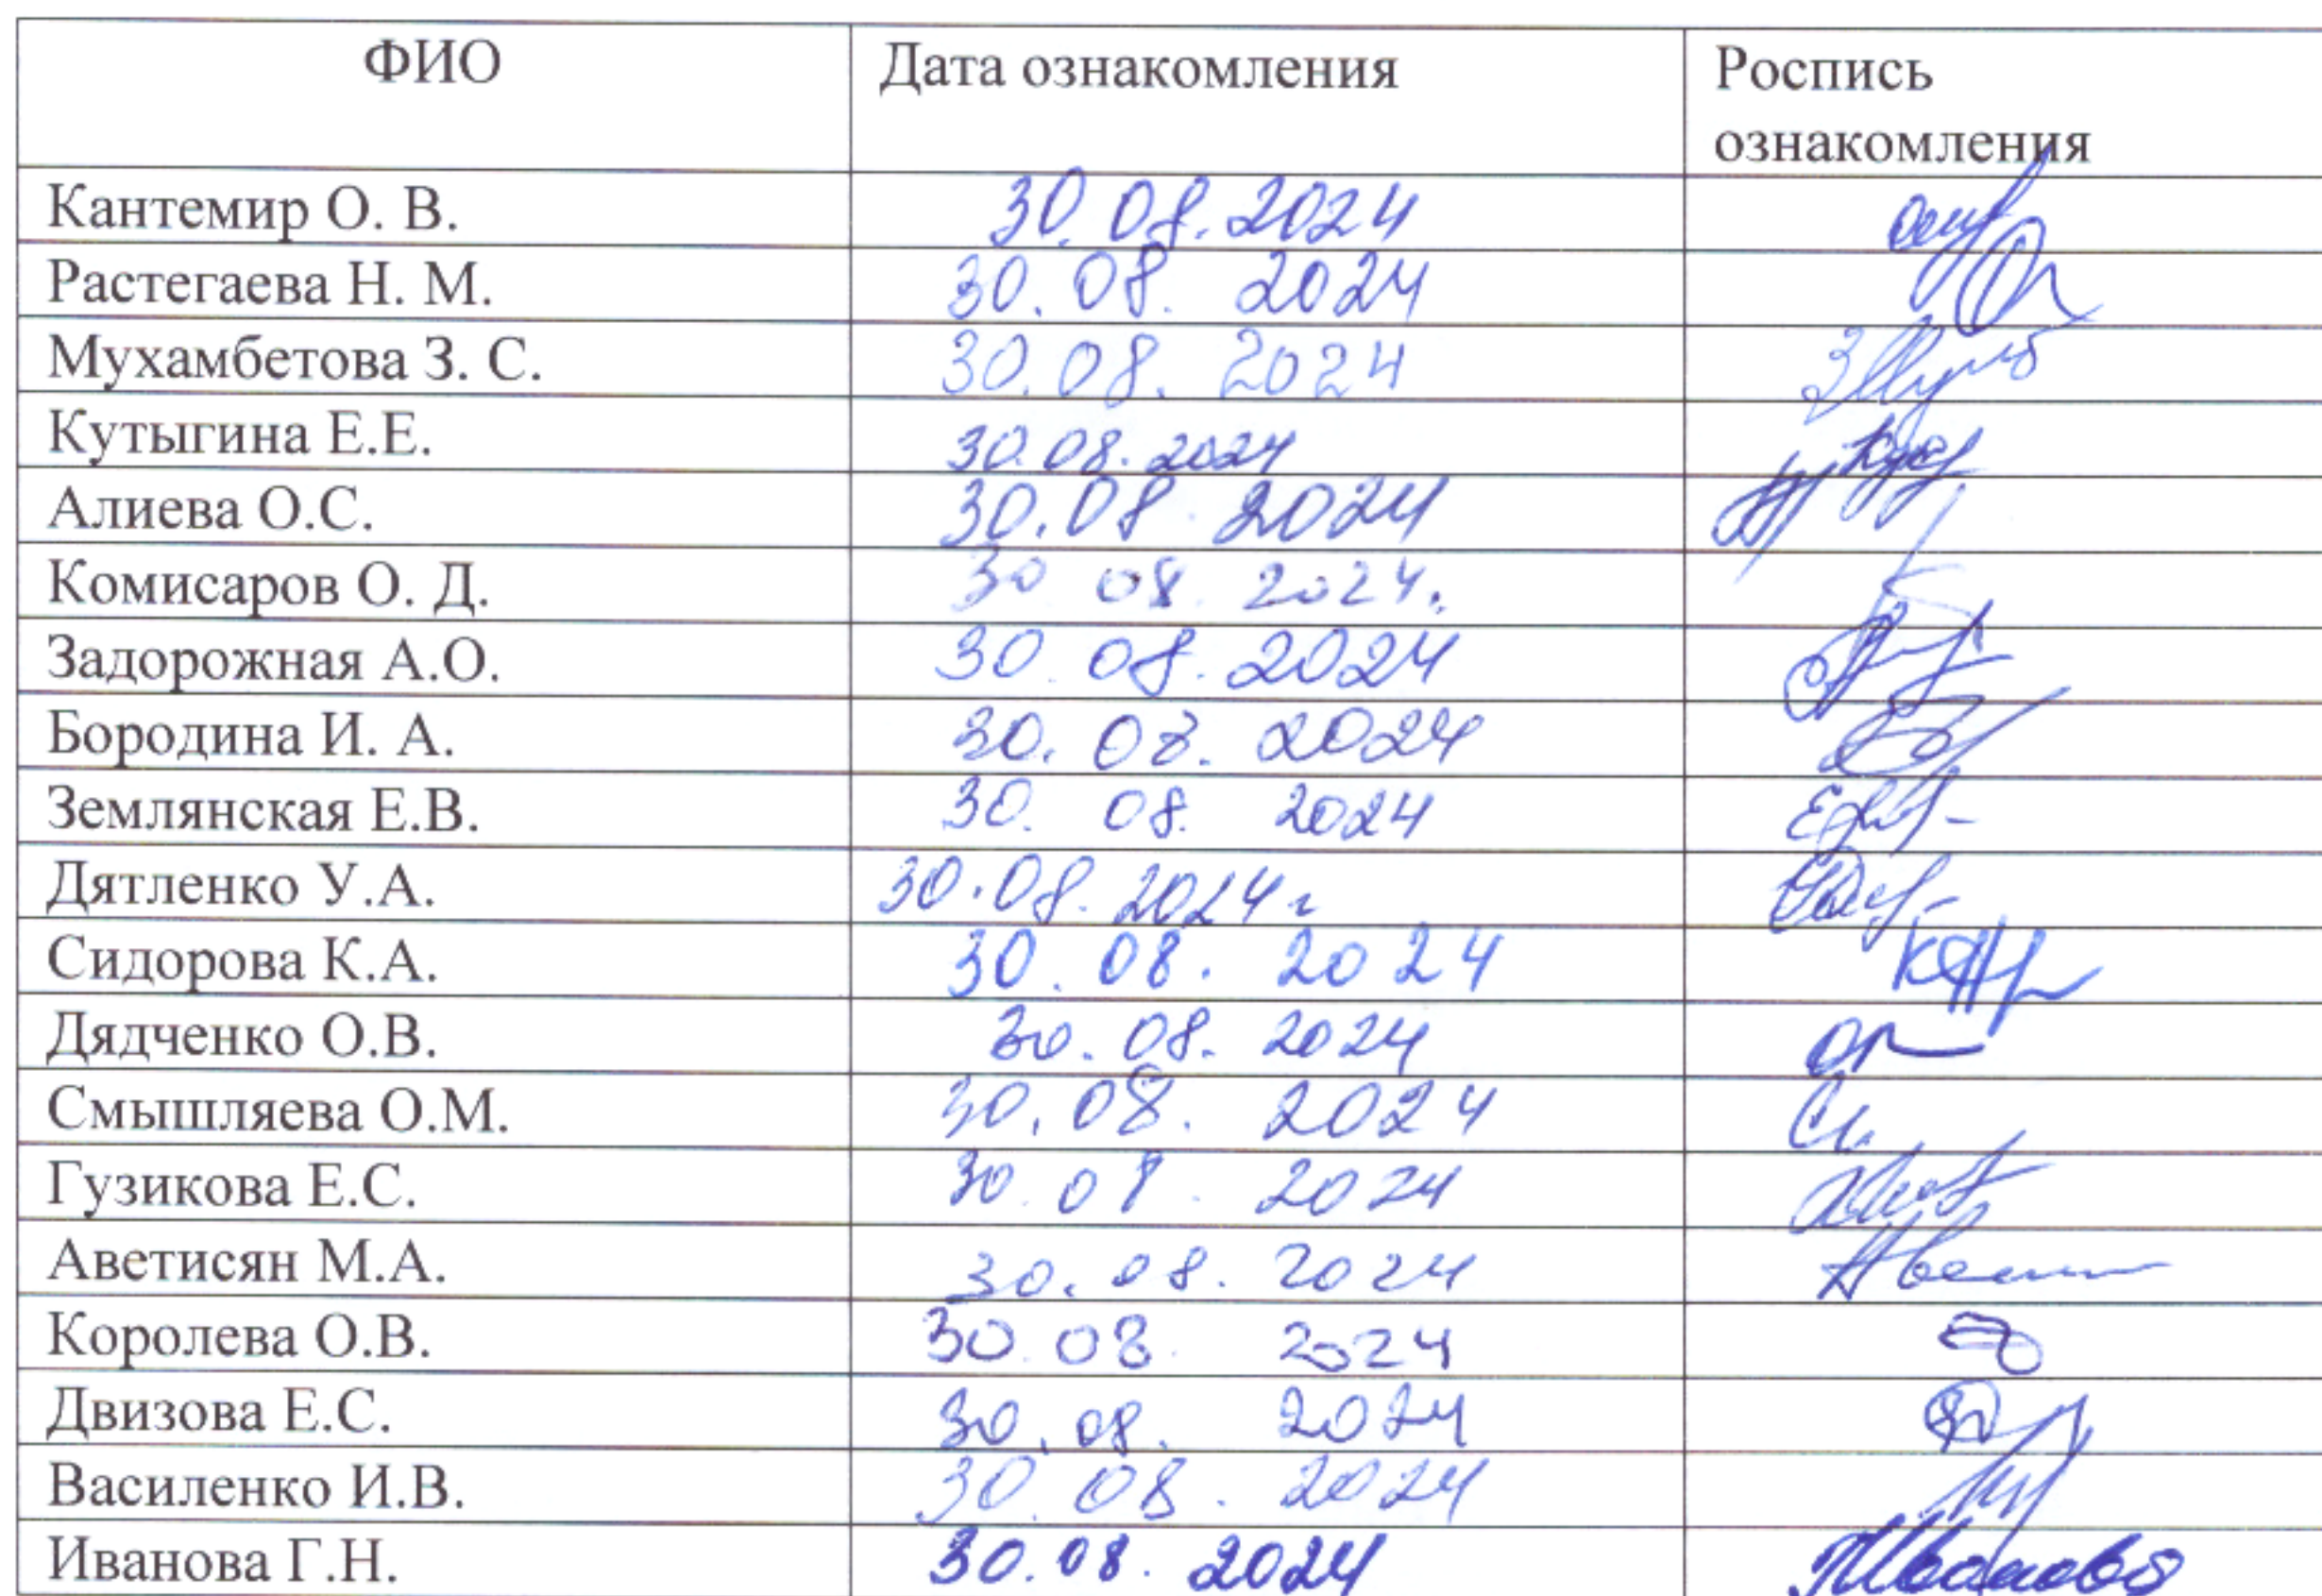 ФИО Дата ознакомления Роспись
ознакомления
Кантемир О. В. 30.08.2024
Растегаева Н. М. 30.08. 2024
Мухамбетова З. С. 30.08. 2024
Кутыгина Е.Е. 30.08.2024
Алиева О.С. 30.08.2024
Комисаров О. Д. 30 08 2024.
Задорожная А.О. 30.08.2024
Бородина И. А. 30. 08. 2024
Землянская Е.В. 30. 08. 2024
Дятленко У.А. 30.08.2024г
Сидорова К.А. 30. 08. 2024
Дядченко О.В. 30. 08. 2024
Смышляева О.М. 30.08. 2024
Гузикова Е.С. 30.08. 2024
Аветисян М.А. 30.08. 2024
Королева О.В. 30.08. 2024
Двизова Е.С. 30.08. 2024
Василенко И.В. 30.08. 2024
Иванова Г.Н. 30.08. 2024